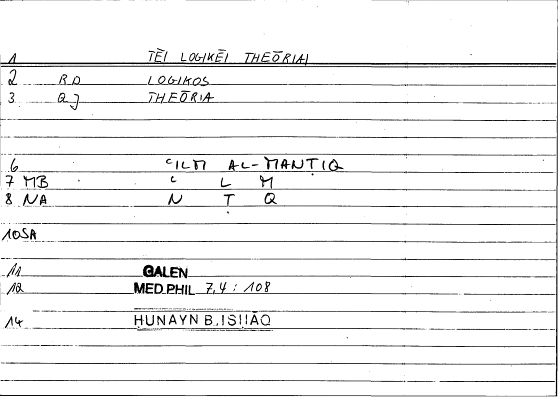 1 TĒI LOGIKĒI THEŌRIAI
2 RD LOGIKOS
3 QJ THEŌRIA
6 ʿILM AL-MANṬIQ
7 MB ʿ L M
8 NA N Ṭ Q
10SA
11 GALEN
12 MED.PHIL 7,4 : 108
14 ḤUNAYN B. ISḤĀQ